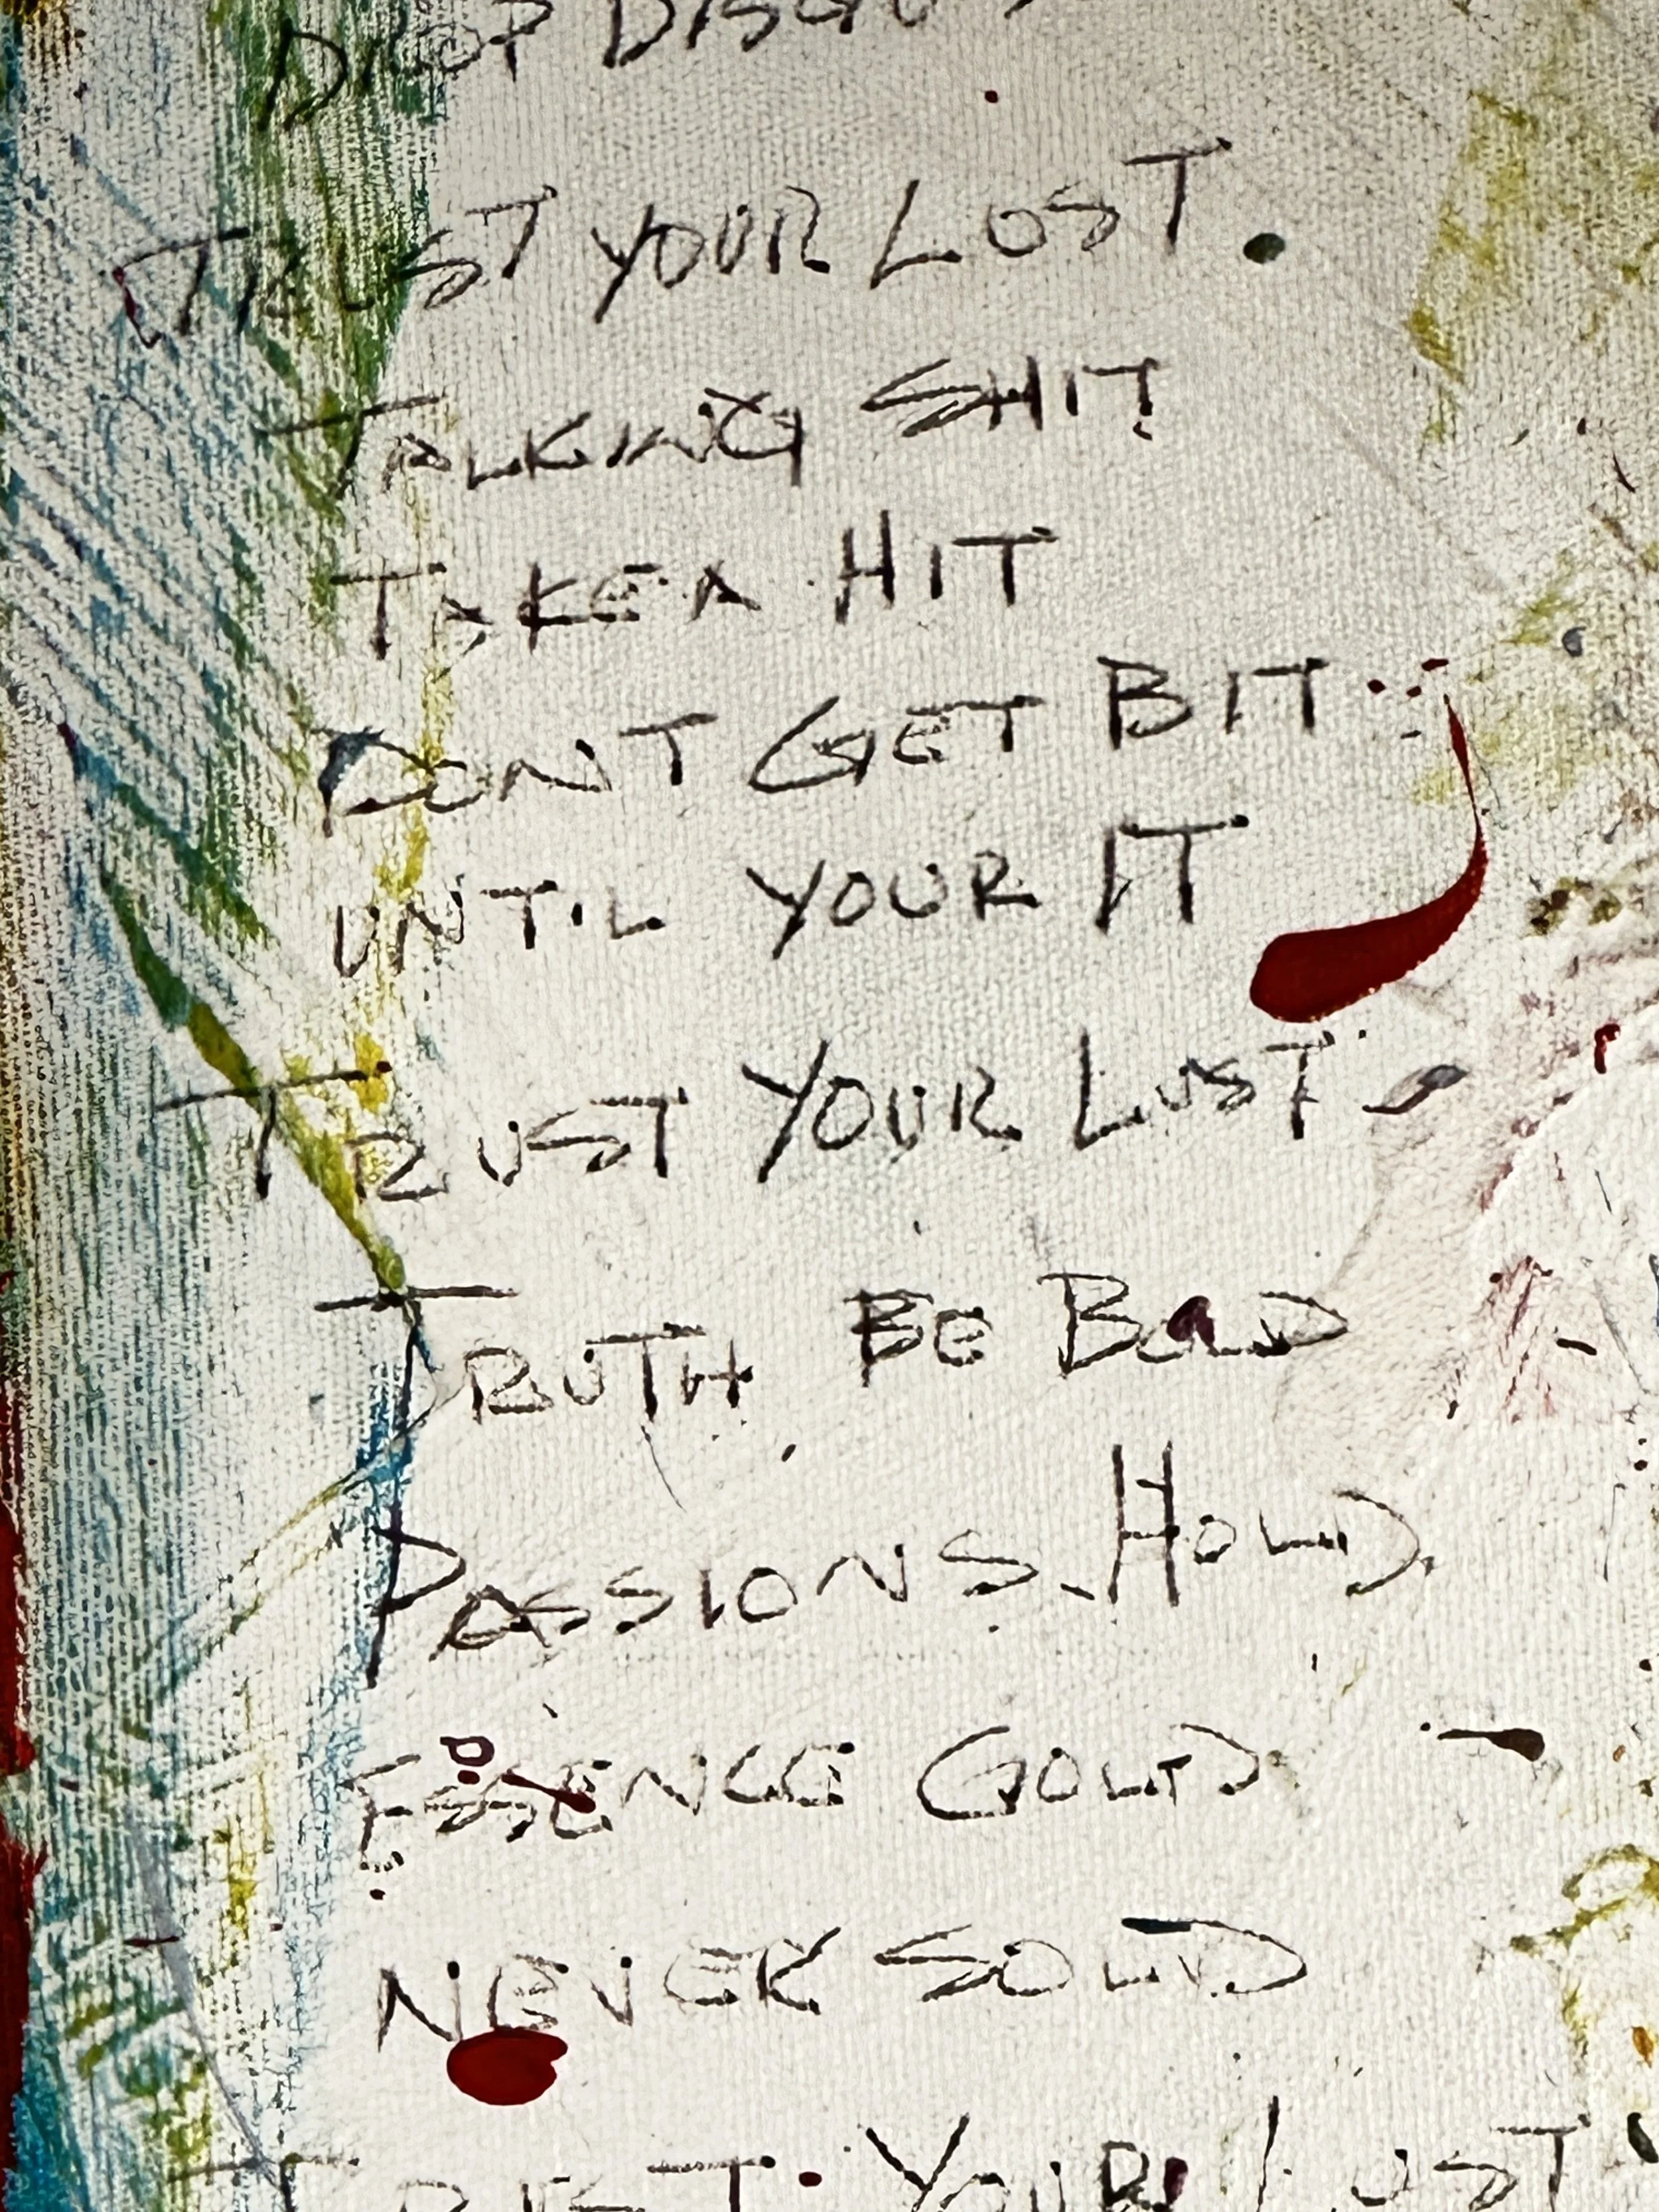 DROP
TRUST YOUR LUST.
TALKING SHIT
TAKE A HIT
DONT GET BIT
UNTIL YOUR IT
TRUST YOUR LUST
TRUTH BE BOLD
PASSIONS HOLD
ESSENCE GOLD
NEVER SOLD
TRUST YOUR LUST